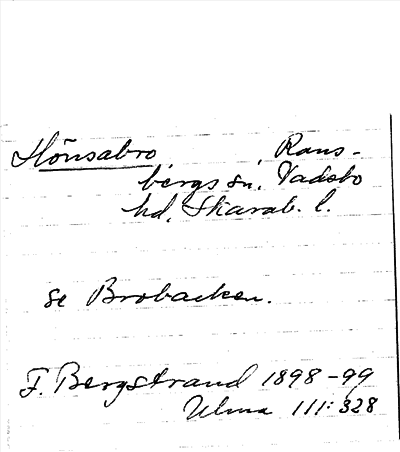 Hönsabro, Rans-
bergs sn, Vadsbo
hd, Skarab. l.
se Brobacken.
F. Bergstrand 1898-99
Ulma 111:328